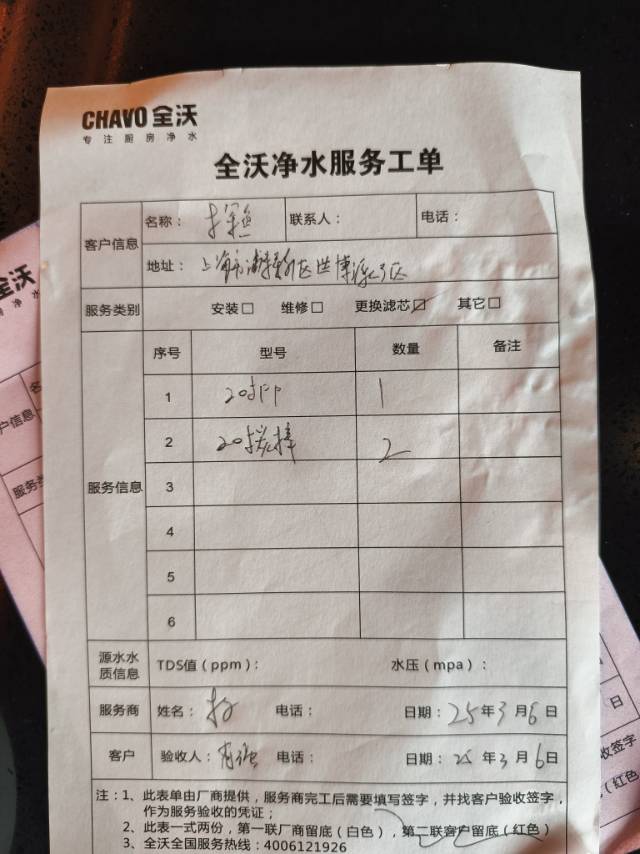 CHAVO 全沃
专注厨房净水
全沃净水服务工单
客户信息 名称： 联系人： 电话：
地址：上海市浦东新区世博源
服务类别 安装□ 维修□ 更换滤芯☑ 其它□
服务信息 序号 型号 数量 备注
1 20寸PP 1
2 20寸碳棒 2
3
4
5
6
源水水质信息 TDS值（ppm）： 水压（mpa）：
服务商 姓名： 电话： 日期：25年3月6日
客户 验收人： 电话： 日期：25年3月6日
注：1、此表单由厂商提供，服务商完工后需要填写签字，并找客户验收签字，
作为服务验收的凭证；
2、此表一式两份，第一联厂商留底（白色），第二联客户留底（红色）
3、全沃全国服务热线：4006121926
全沃
房净水
户信息
服务
日
收签字
（红色